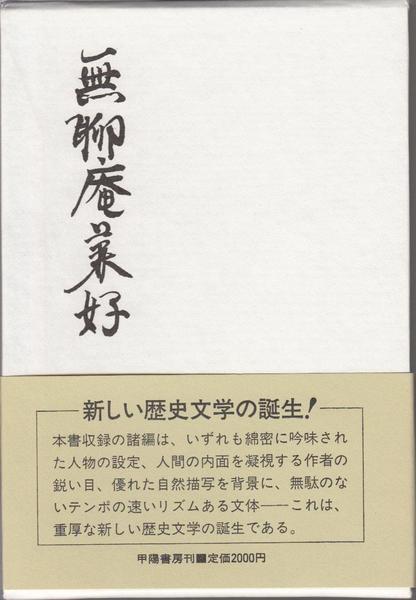 無聊庵菜好
新しい歴史文学の誕生!
本書収録の諸編は、いずれも綿密に吟味され
た人物の設定、人間の内面を凝視する作者の
鋭い目、優れた自然描写を背景に、無駄のな
いテンポの速いリズムある文体——これは、
重厚な新しい歴史文学の誕生である。
甲陽書房刊■定価2000円